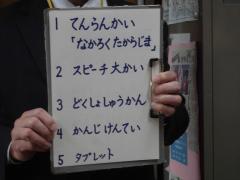 1 てんらんかい
「なかろくたからじま」
2 スピーチ大かい
3 どくしょしゅうかん
4 かんじけんてい
5 タブレット